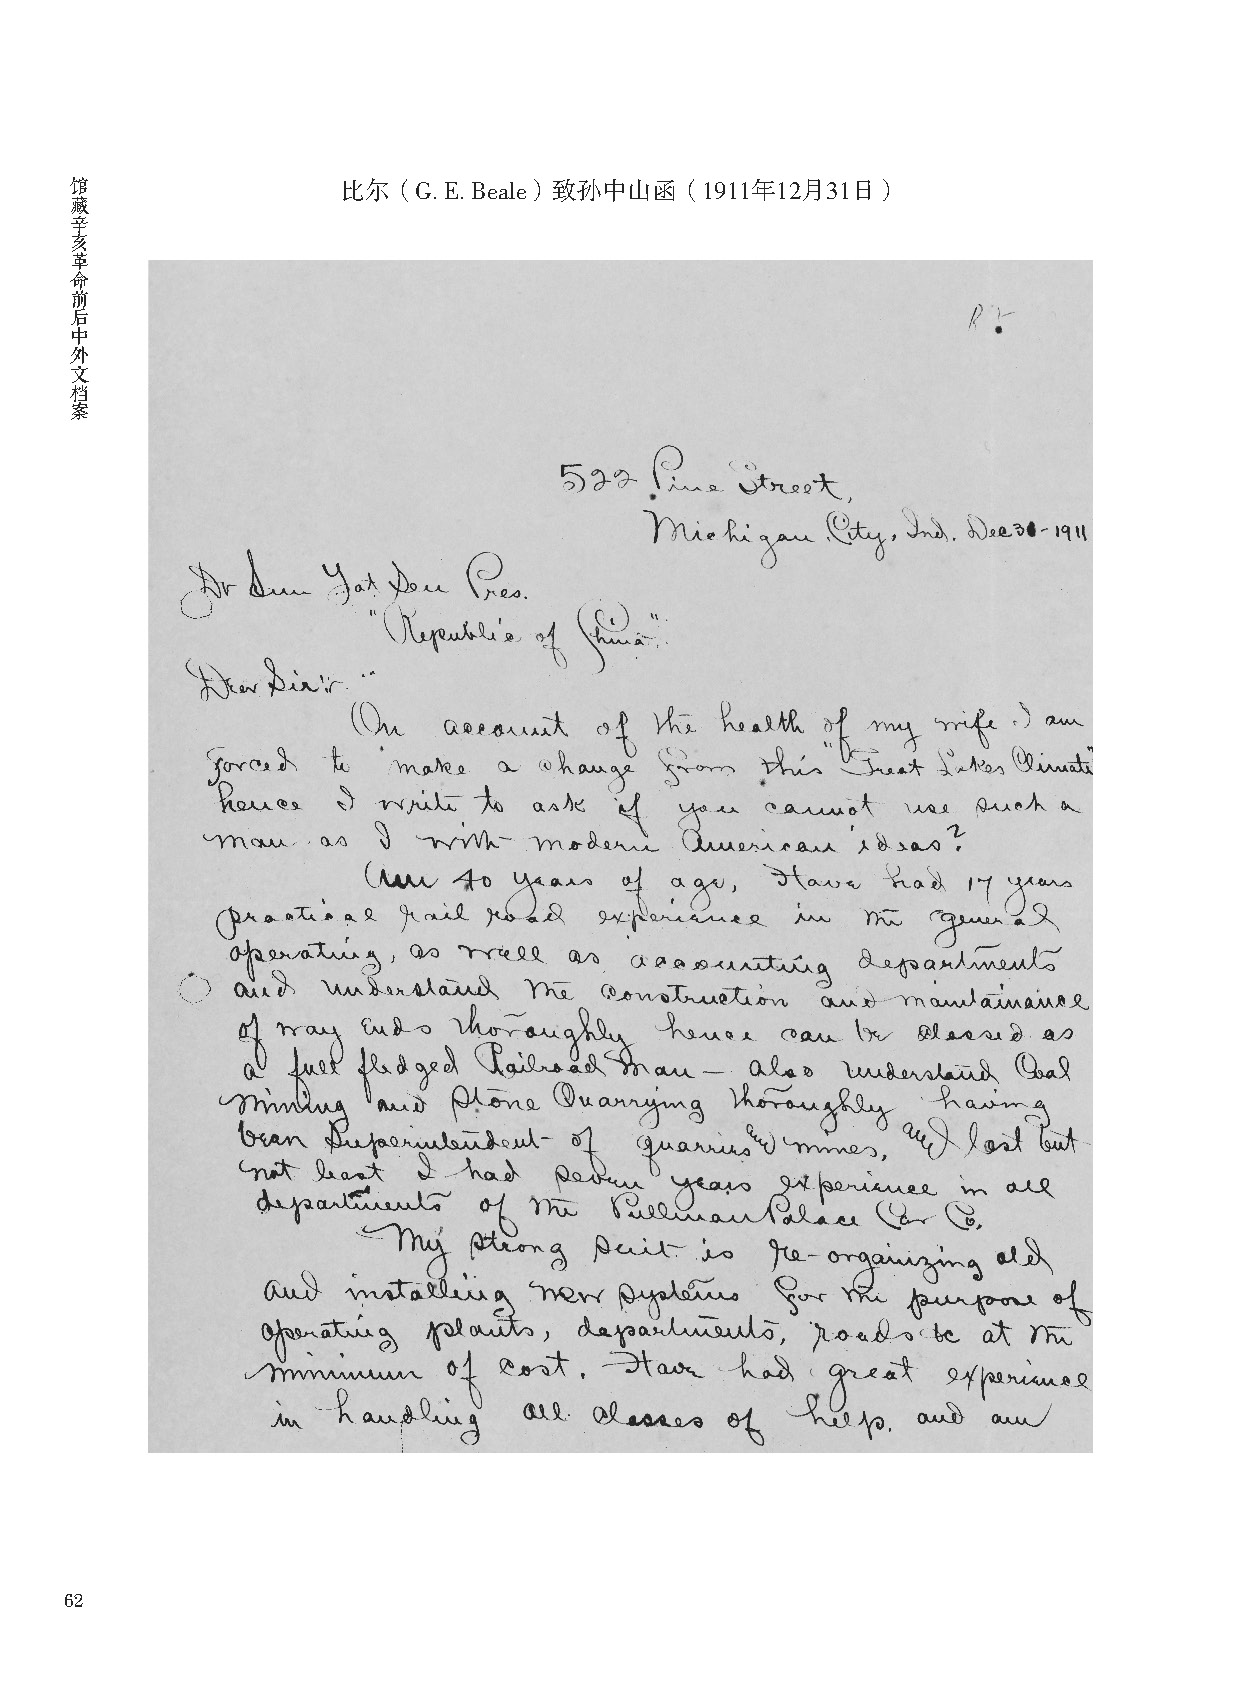 馆藏辛亥革命前后中外文档案
比尔（G. E. Beale）致孙中山函（1911年12月31日）
522 Pine Street,
Michigan City, Ind. Dec 30-1911
Dr Sun Yat Sen Pres.
"Republic of China".
Dear Sir:
On account of the health of my wife I am
forced to make a change from this "Great Lakes Climate"
hence I write to ask if you cannot use such a
man as I with modern American ideas?
Am 40 years of age, Have had 17 years
practical rail road experience in the general
operating, as well as accounting departments
and understand the construction and maintainance
of way ends thoroughly hence can be classed as
a full fledged Railroad Man - also understand Coal
Mining and Stone Quarrying thoroughly having
been Superintendent of quarries and mines, and last but
not least I had seven years experience in all
departments of the Pullman Palace Car Co.
My strong suit is re-organizing old
and installing new systems for the purpose of
operating plants, departments, roads &c at the
minimum of cost. Have had great experience
in handling all classes of help, and am
62